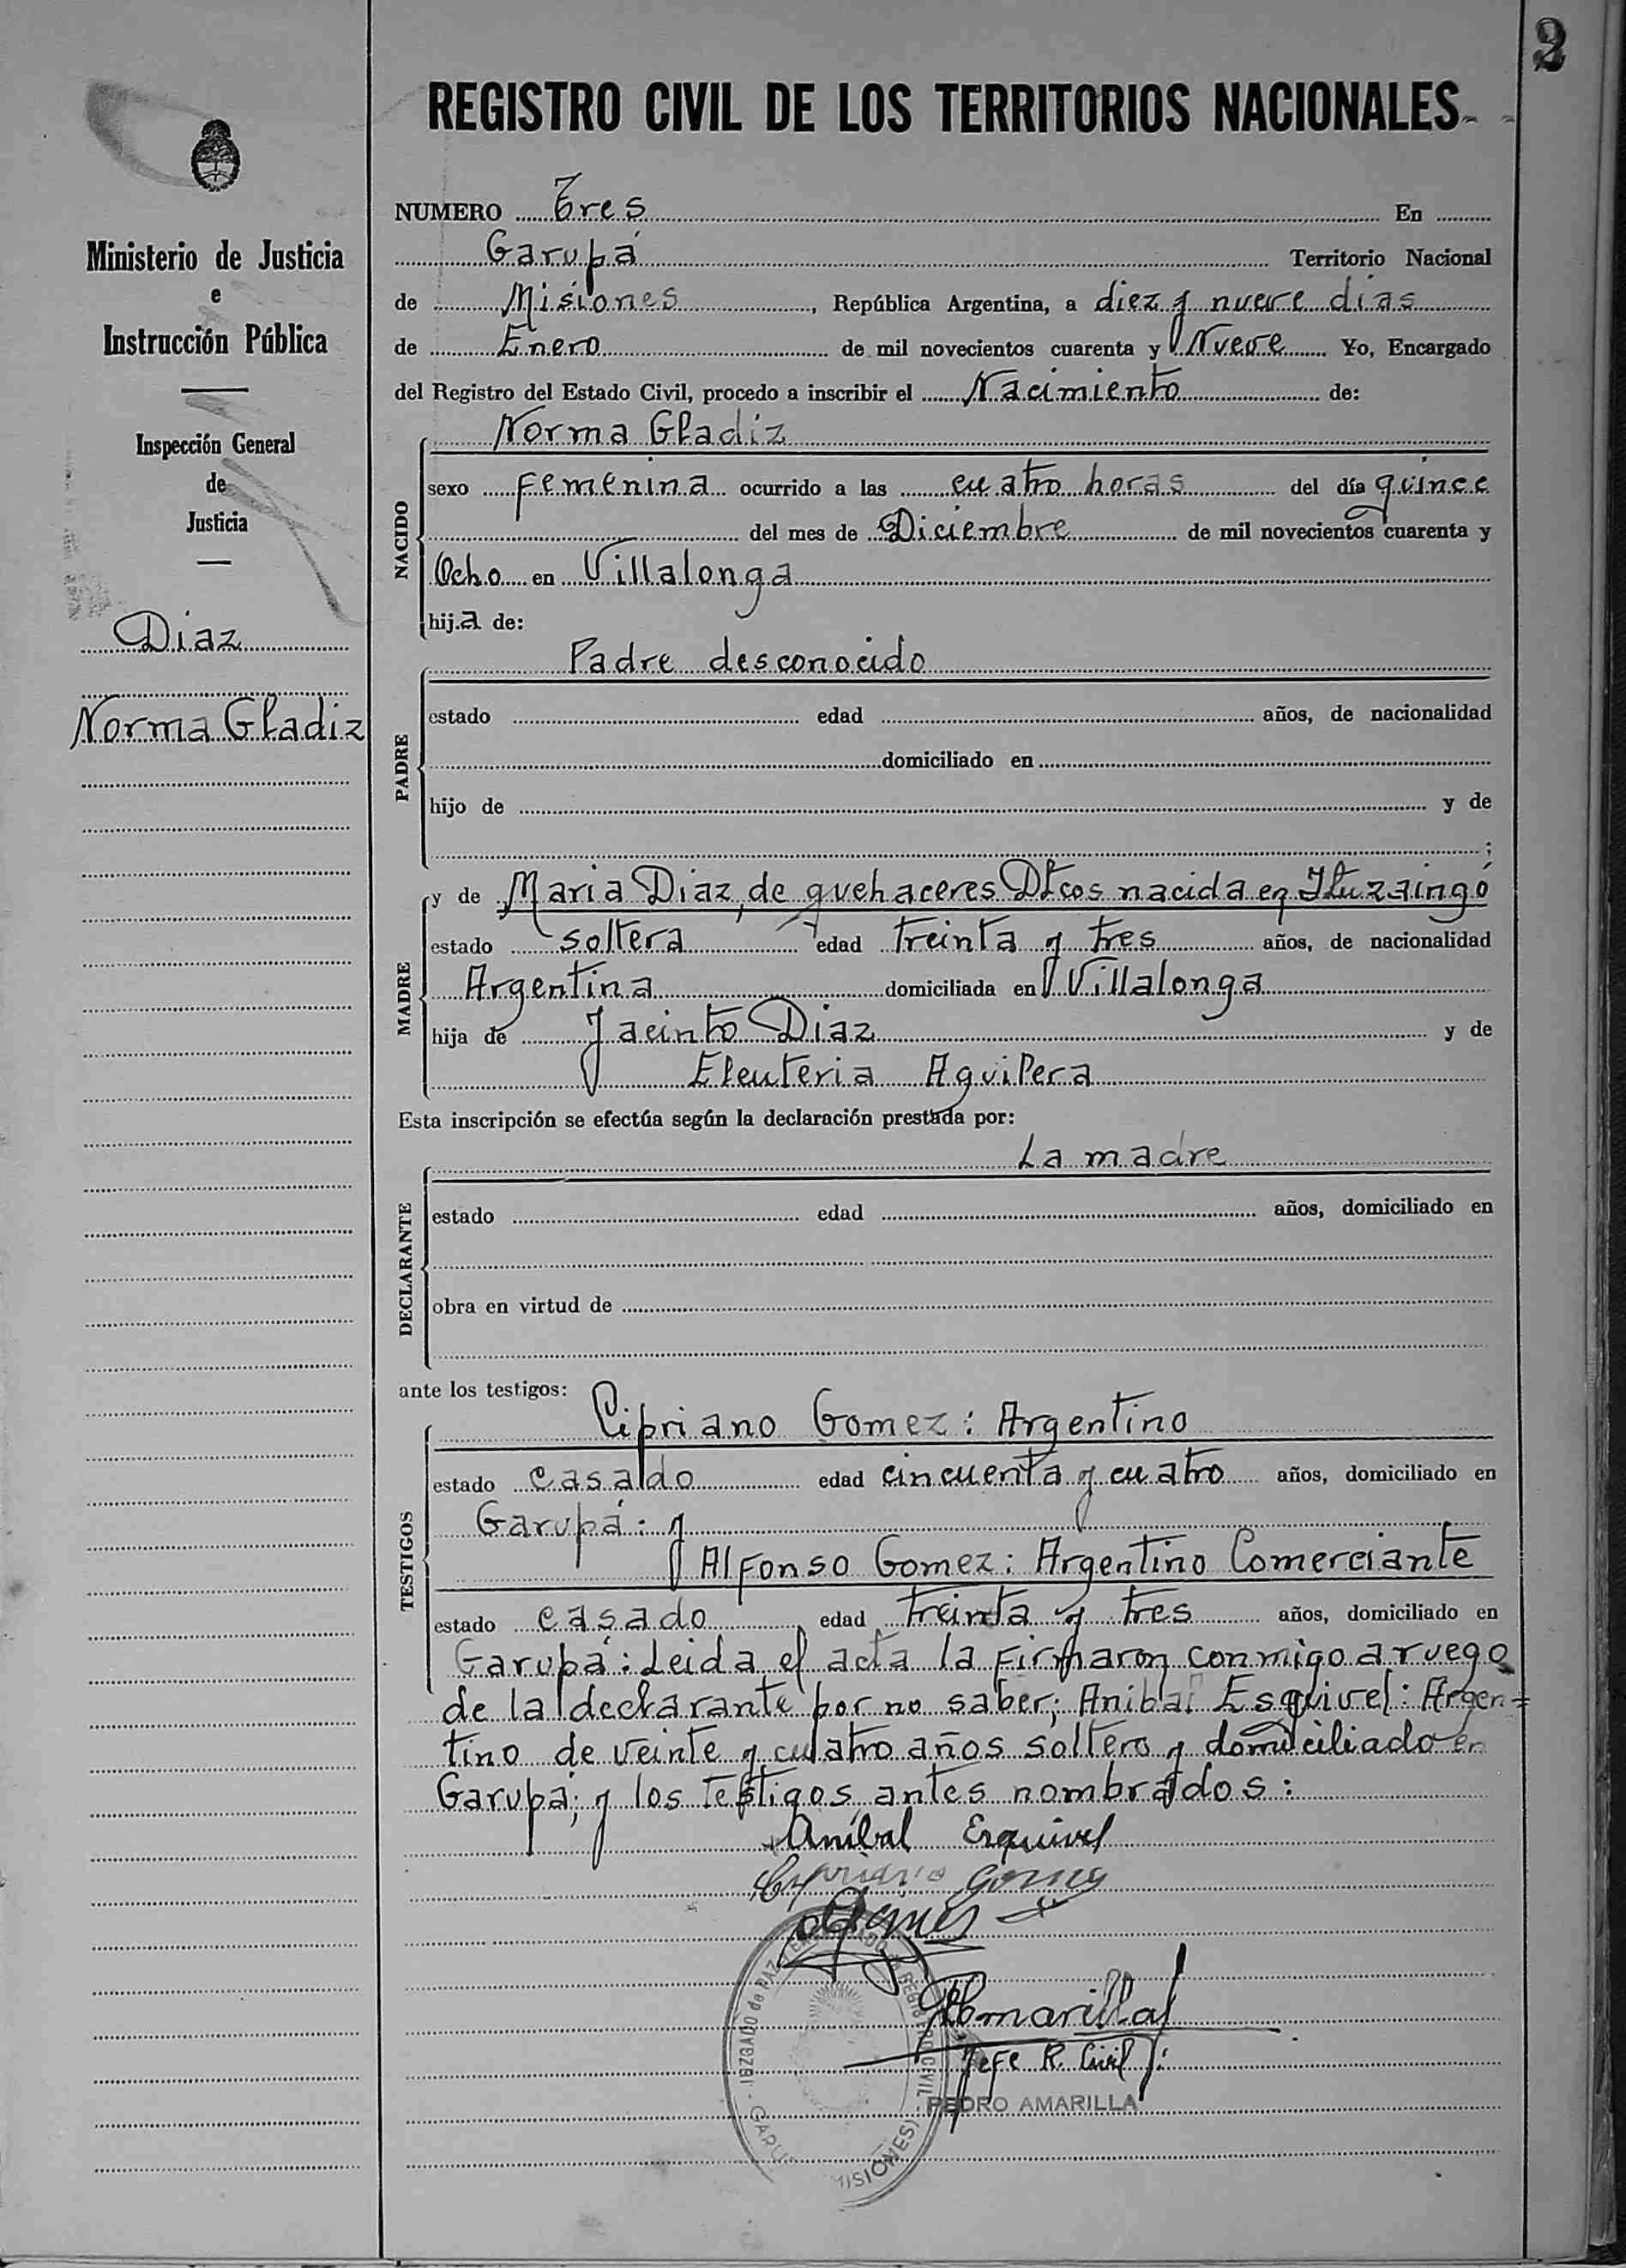 2
REGISTRO CIVIL DE LOS TERRITORIOS NACIONALES
Ministerio de Justicia
e
Instrucción Pública
Inspección General
de
Justicia
Diaz
Norma Gladiz
NUMERO Tres En
Garupá Territorio Nacional
de Misiones, República Argentina, a diez y nueve dias
de Enero de mil novecientos cuarenta y Nueve Yo, Encargado
del Registro del Estado Civil, procedo a inscribir el Nacimiento de:
NACIDO
Norma Gladiz
sexo Femenina ocurrido a las cuatro horas del día quince
del mes de Diciembre de mil novecientos cuarenta y
Ocho en Villalonga
hija de:
PADRE
Padre desconocido
estado edad años, de nacionalidad
domiciliado en
hijo de y de
;
MADRE
y de Maria Diaz, de quehaceres Dtcos nacida en Ituzaingó
estado soltera edad treinta y tres años, de nacionalidad
Argentina domiciliada en Villalonga
hija de Jacinto Diaz y de
Eleuteria Aguilera
Esta inscripción se efectúa según la declaración prestada por:
DECLARANTE
La madre
estado edad años, domiciliado en
obra en virtud de
ante los testigos:
TESTIGOS
Cipriano Gomez: Argentino
estado casado edad cincuenta y cuatro años, domiciliado en
Garupá: y
Alfonso Gomez: Argentino Comerciante
estado casado edad treinta y tres años, domiciliado en
Garupá: Leida el acta la Firmaron conmigo a ruego
de la declarante por no saber; Anibal Esquivel: Argen-
tino de veinte y cuatro años soltero y domiciliado en
Garupá; y los testigos antes nombrados:
Anibal Esquivel
Cipriano Gomez
Amarilla
Jefe R. Civil
PEDRO AMARILLA
JUZGADO de PAZ REGISTRO CIVIL
GARU MISIONES)